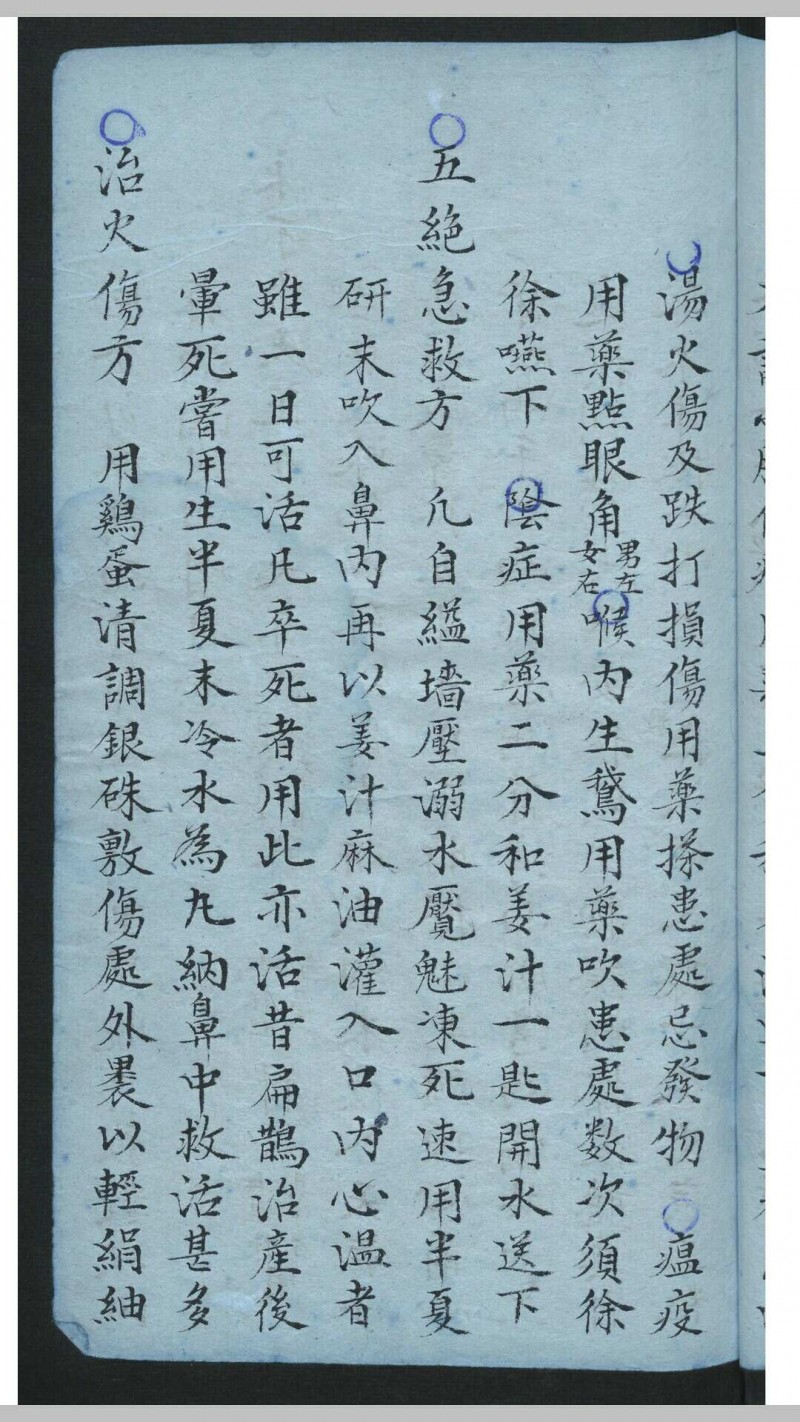 湯火傷及跌打損傷用藥搽患處忌發物 瘟疫
用藥點眼角男左女右喉內生鵞用藥吹患處数次須徐
徐嚥下 陰症用藥二分和姜汁一匙開水送下
五絕急救方 凢自縊墻壓溺水魘魅凍死速用半夏
研末吹入鼻內再以姜汁麻油灌入口內心温者
雖一日可活凡卒死者用此亦活昔扁鵲治產後
暈死嘗用生半夏末冷水為丸納鼻中救活甚多
治火傷方 用鷄蛋清調銀硃敷傷處外裹以輕絹紬